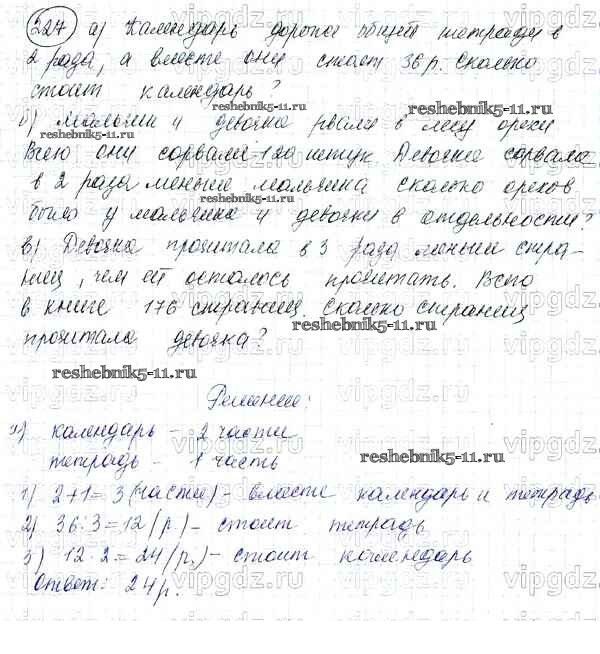 227 а) Календарь дороже общей тетради в
2 раза, а вместе они стоят 36 р. Сколько
стоит календарь?
reshebnik5-11.ru
б) Мальчик и девочка рвали в лесу орехи
reshebnik5-11.ru
Всего они сорвали 120 штук. Девочка сорвала
в 2 раза меньше мальчика сколько орехов
reshebnik5-11.ru
было у мальчика и девочки в отдельности?
в) Девочка прочитала в 3 раза меньше стра-
ниц, чем ей осталось прочитать. Всего
в книге 176 страниц. Сколько страниц
reshebnik5-11.ru
прочитала девочка?
reshebnik5-11.ru
vipgdz.ru
Решение:
а) календарь - 2 части
reshebnik5-11.ru
тетрадь - 1 часть
1) 2+1=3 (части) - вместе календарь и тетрадь
2) 36:3=12 (р.) - стоит тетрадь
3) 12·2=24 (р.) - стоит календарь
Ответ: 24 р.
vipgdz.ru